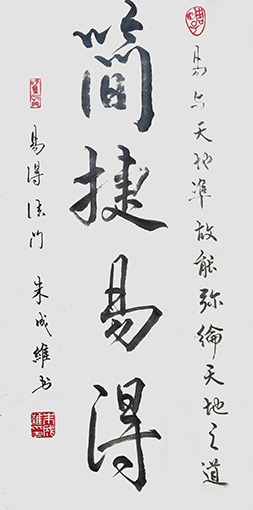 易与天地準故能弥綸天地之道
簡捷易得
易得法门 朱成維书
朱成維